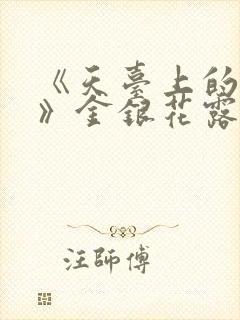 《天臺上的
》金銀花露
汪師傅